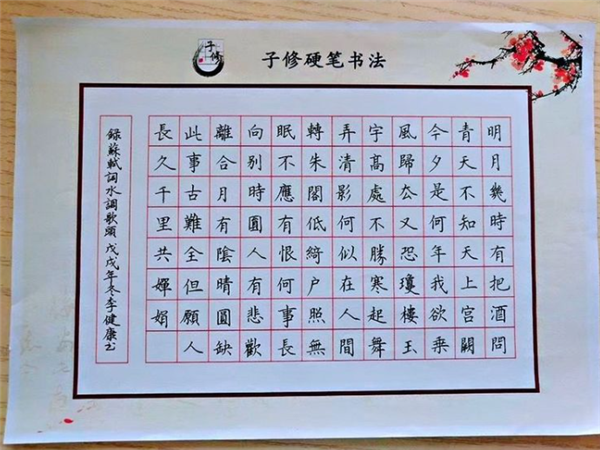 子修
子修硬笔书法
明月幾時有把酒問
青天不知天上宮闕
今夕是何年我欲乘
風歸厺又恐瓊樓玉
宇高處不勝寒起舞
弄清影何似在人間
轉朱閣低綺户照無
眠不應有恨何事長
向别時圓人有悲歡
離合月有陰晴圓缺
此事古難全但願人
長久千里共嬋娟
錄蘇軾詞水調歌頭戊戌年冬李健康书